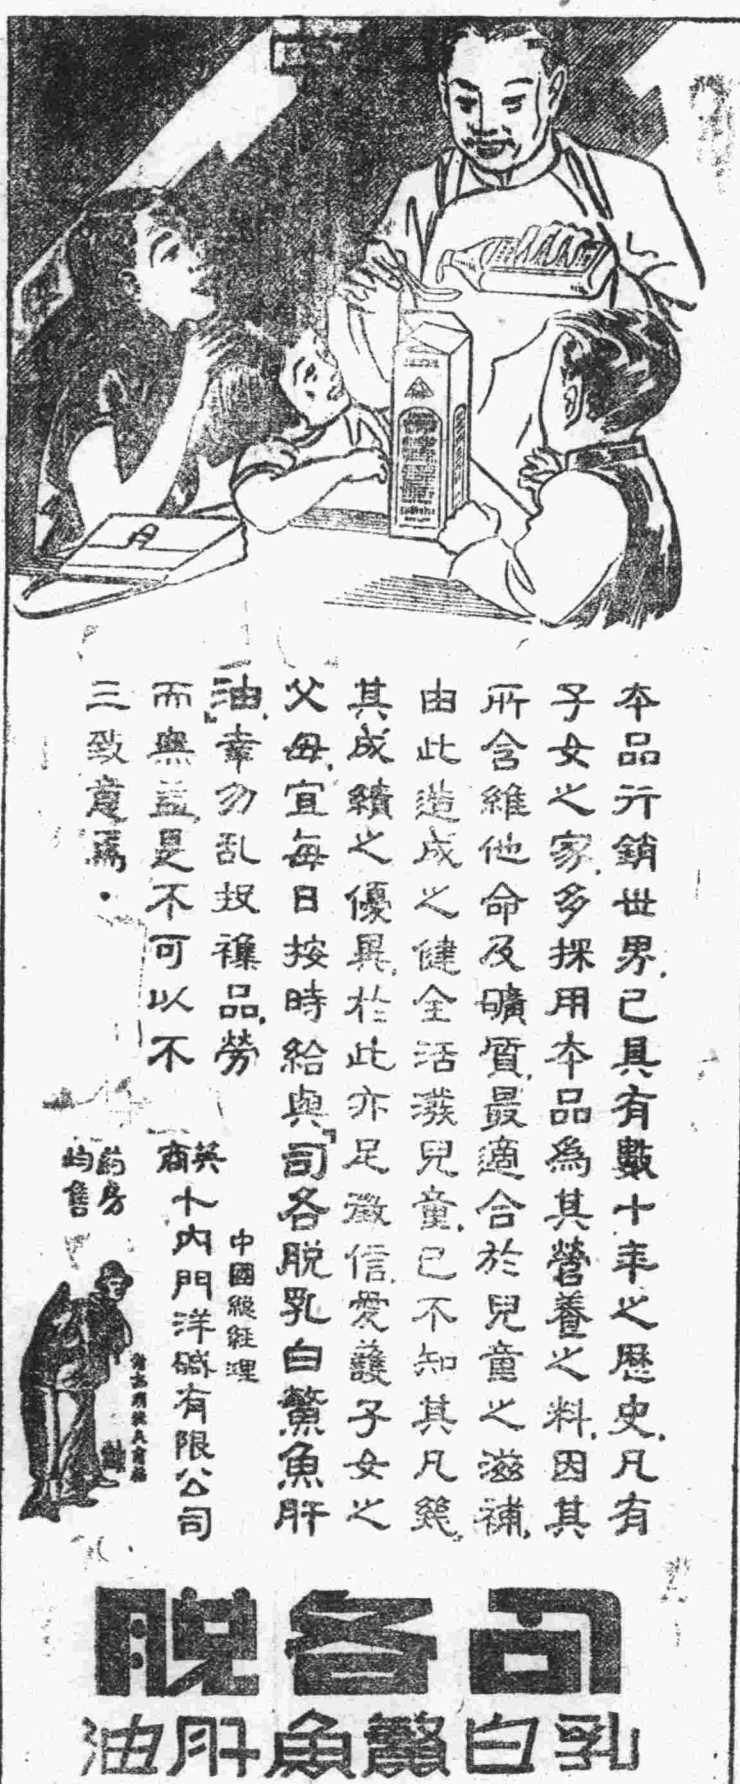 本品行銷世界,已具有數十年之歷史,凡有
子女之家,多採用本品為其營養之料,因其
所含維他命及礦質,最適合於兒童之滋補,
由此造成之健全活潑兒童,已不知其凡幾,
其成績之優異,於此亦足徵信,愛護子女之
父母,宜每日按時給與『司各脫乳白鰵魚肝
油』,幸勿乱投襍品,勞
而無益,是不可以不
三致意焉.
中國總經理
英商
卜內門洋碱有限公司
葯房
均售
司各脫
乳白鰵魚肝油